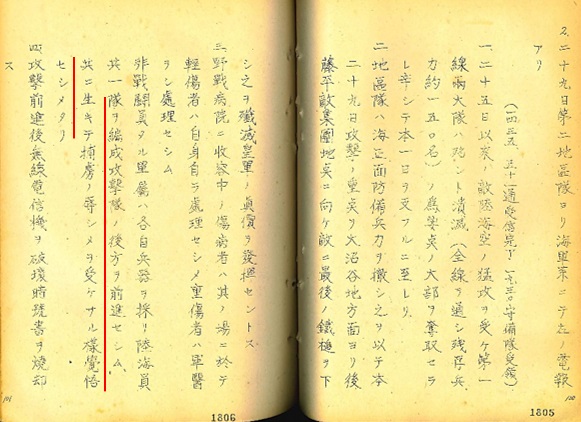 2.二十九日第二地區隊ヨリ海軍宛ニテ左ノ電報
アリ
(一四三五 五十一通受信完了 一九三〇守備隊受領)
一、二十五日以來ノ敵陸海空ノ猛攻ヲ受ケ第一
線兩大隊ハ殆ント潰滅(全線ヲ通シ殘存兵
力約一五〇名)ノ爲要点ノ大部ヲ奪取セラ
レ辛シテ本一日ヲ支フルニ至レリ
二、地區隊ハ海正面防備兵力ヲ徹シ之ヲ以テ本
二十九日攻撃ノ重点ヲ大沼谷地方面ヨリ後
藤平敵集團地点ニ向ケ敵ニ最後ノ鐵槌ヲ下
1805
シ之ヲ殲滅皇軍ノ真價ヲ發揮セントス
三、野戰病院ニ收容中ノ傷病者ハ其ノ場ニ於テ
輕傷者ハ自身自ラ處理セシメ重傷者ハ軍醫
ヲシ處理セシム
非戰鬪員タル軍屬ハ各自兵器ヲ採リ陸海員
共一隊ヲ編成攻撃隊ノ後方ヲ前進セシム
共ニ生キテ捕虜ノ辱シメヲ受ケサル樣覺悟
セシメタリ
四、攻撃前進後無線電信機ヲ破壞時號書ヲ燒却
ス
1806